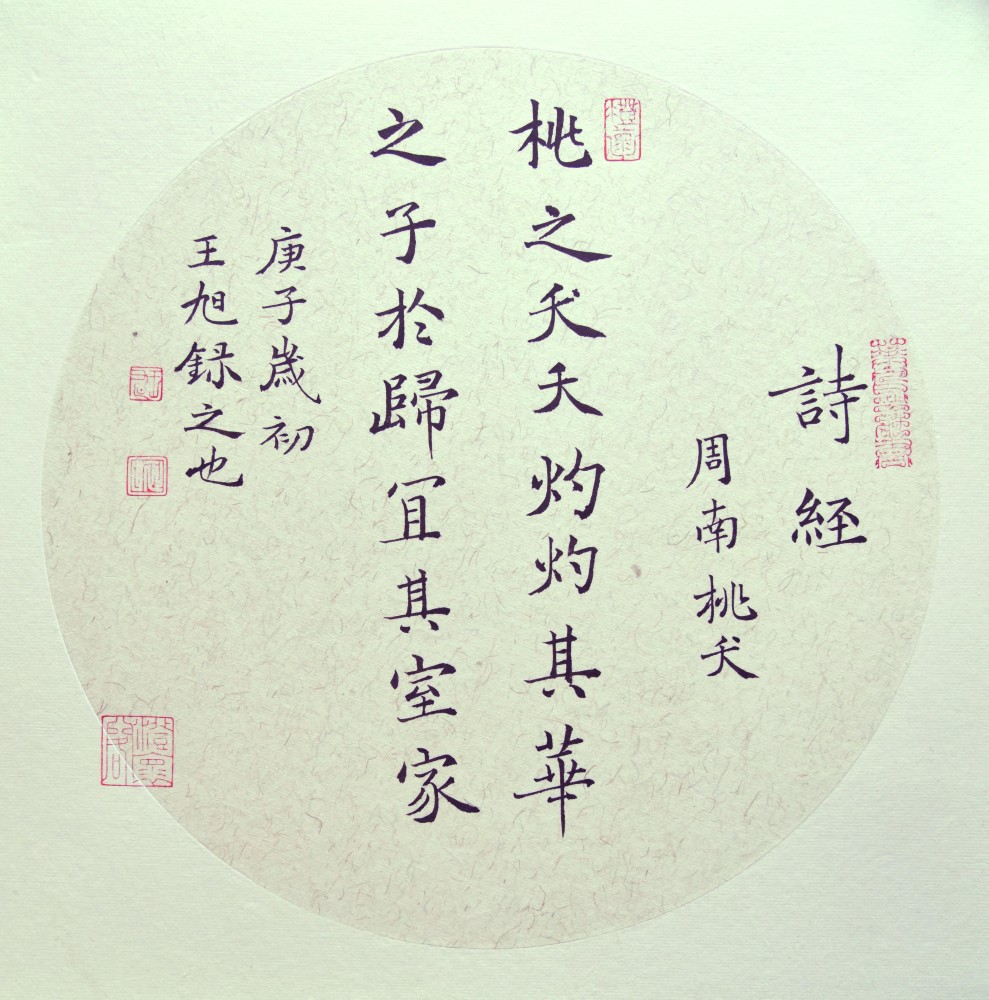 詩經
周南桃夭
桃之夭夭灼灼其華
之子於歸冝其室家
庚子歲初
王旭録之也